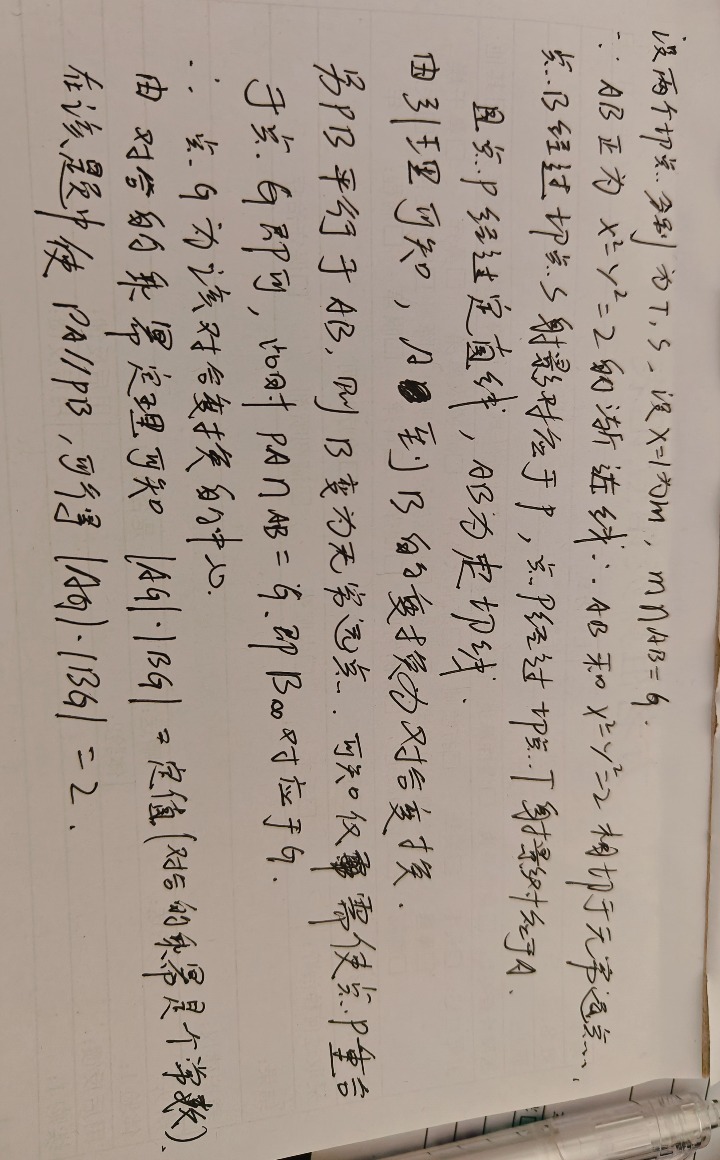 设两个切点分别为T,S,设x=1为m,m∩AB=G.
∵AB正为x²-y²=2的渐进线∴AB和x²-y²=2相切于无穷远点.
点B经过切点S射影对应于P,点P经过切点T射影对应于A.
且点P经过定直线,AB为定切线.
由引理可知,A到B的变换为对合变换.
当PB平行于AB,则B变为无穷远点.可知仅需使点P重合
于点G即可,此时PA∩AB=G.即B∞对应于G.
∴点G为该对合变换的中心.
由对合的乘幂定理可知 |AG|·|BG|=定值(对合的乘幂是个常数).
在该题中使PA//PB,可得|AG|·|BG|=2.